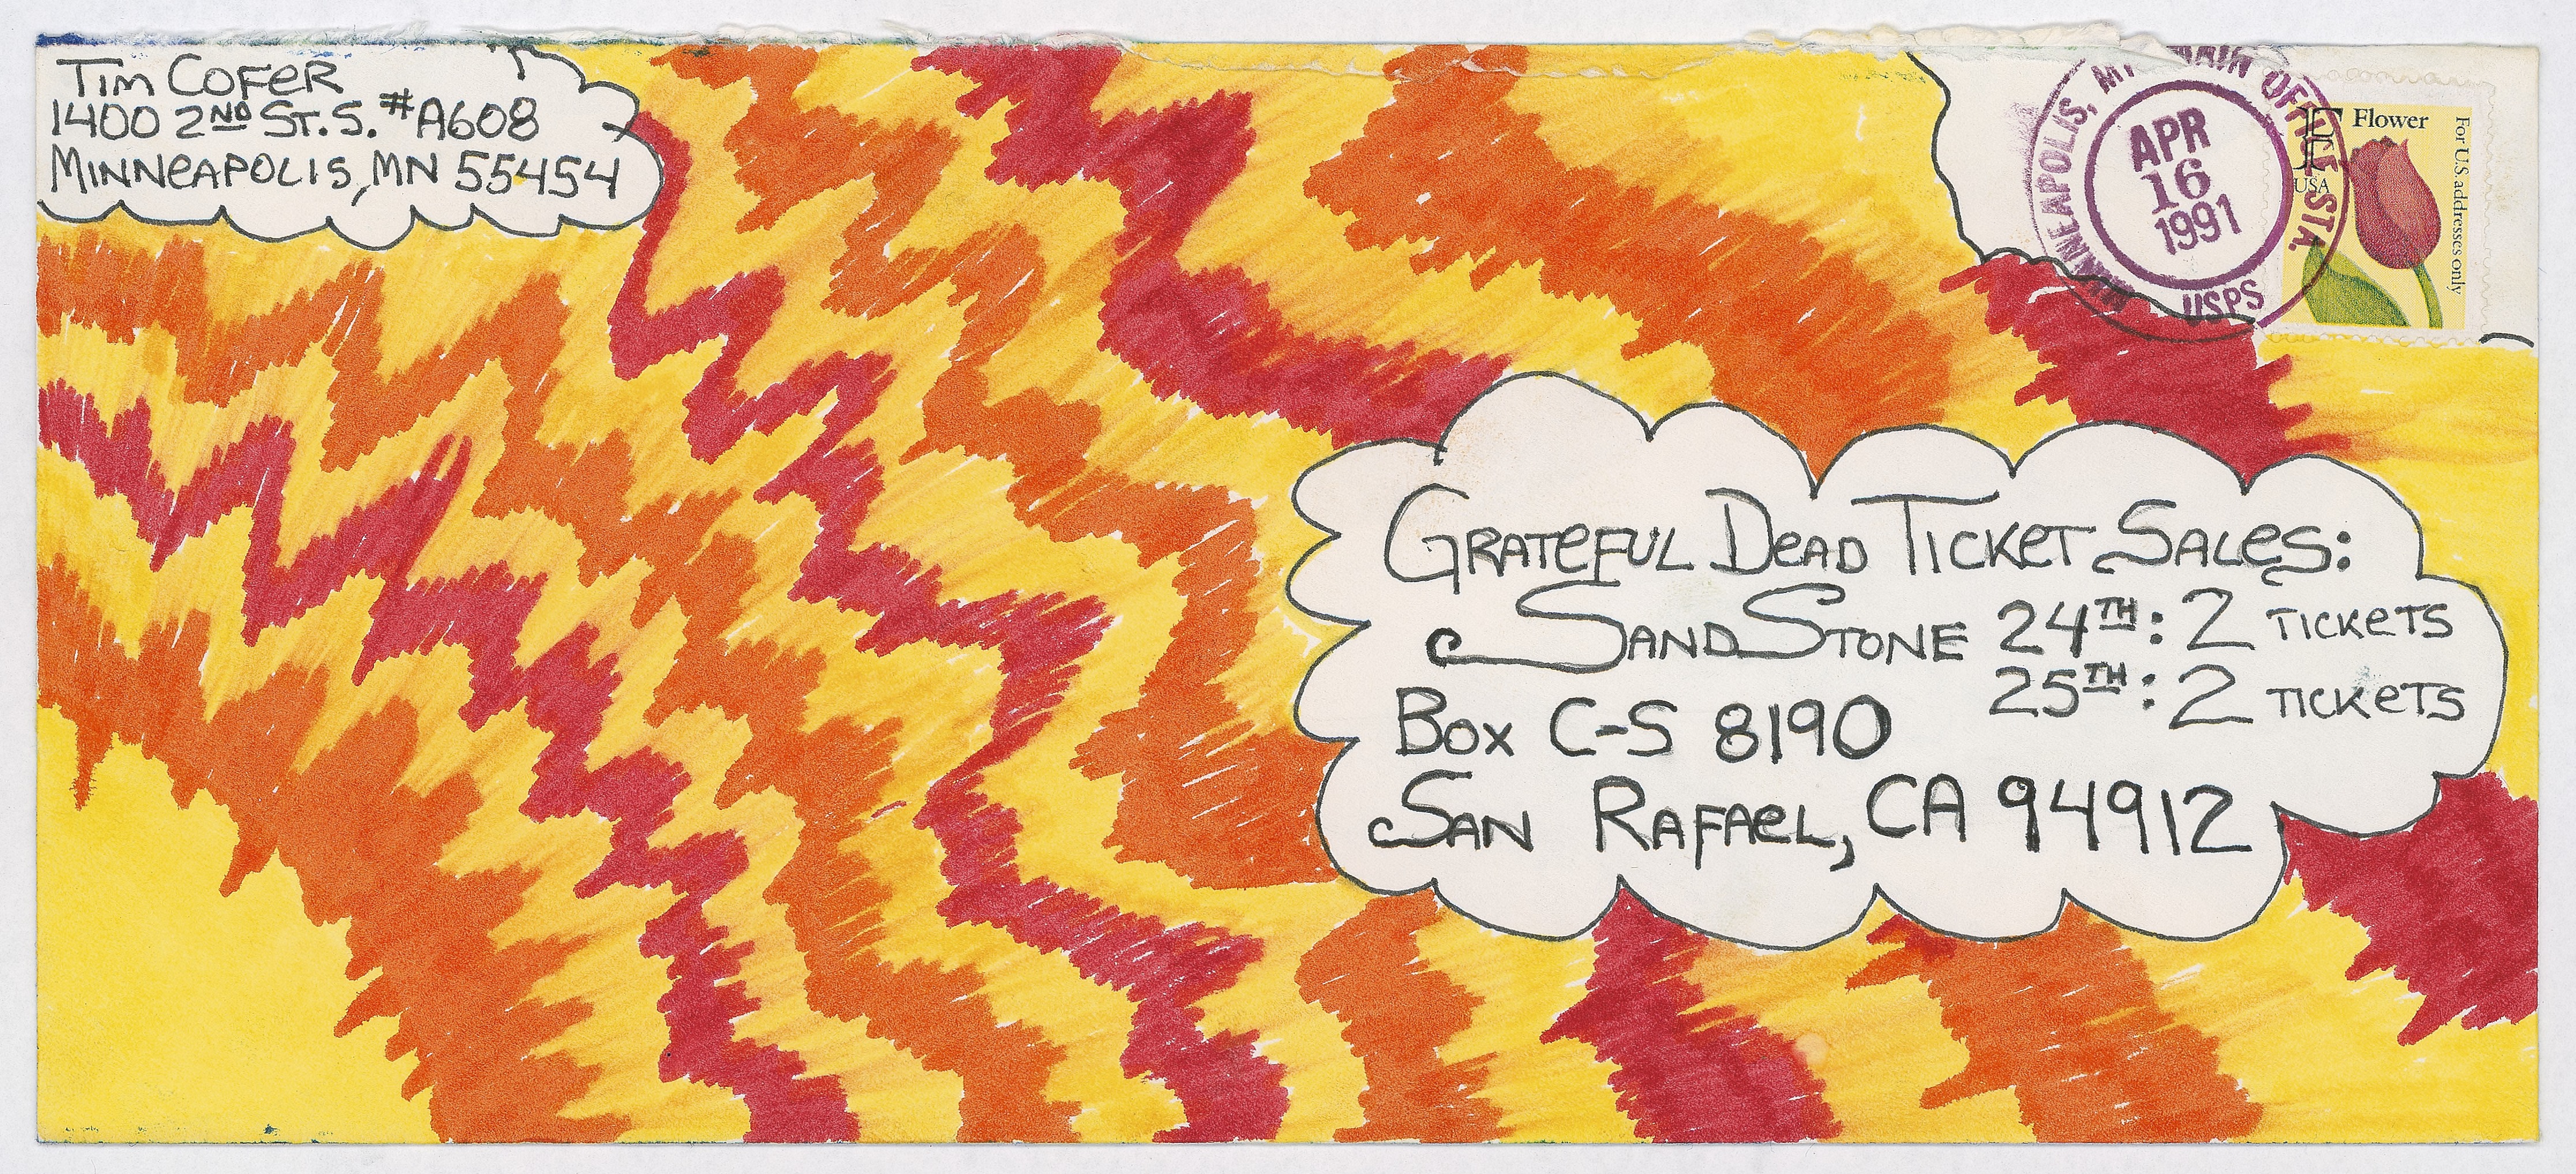 Tim Cofer
1400 2ND St. S. #A608
Minneapolis, MN 55454
MINNEAPOLIS, MN MAIN OFFICE STA.
APR
16
1991
USPS
F Flower
USA
For U.S. addresses only
Grateful Dead Ticket Sales:
SandStone 24TH: 2 tickets
25TH: 2 tickets
Box C-S 8190
San Rafael, CA 94912